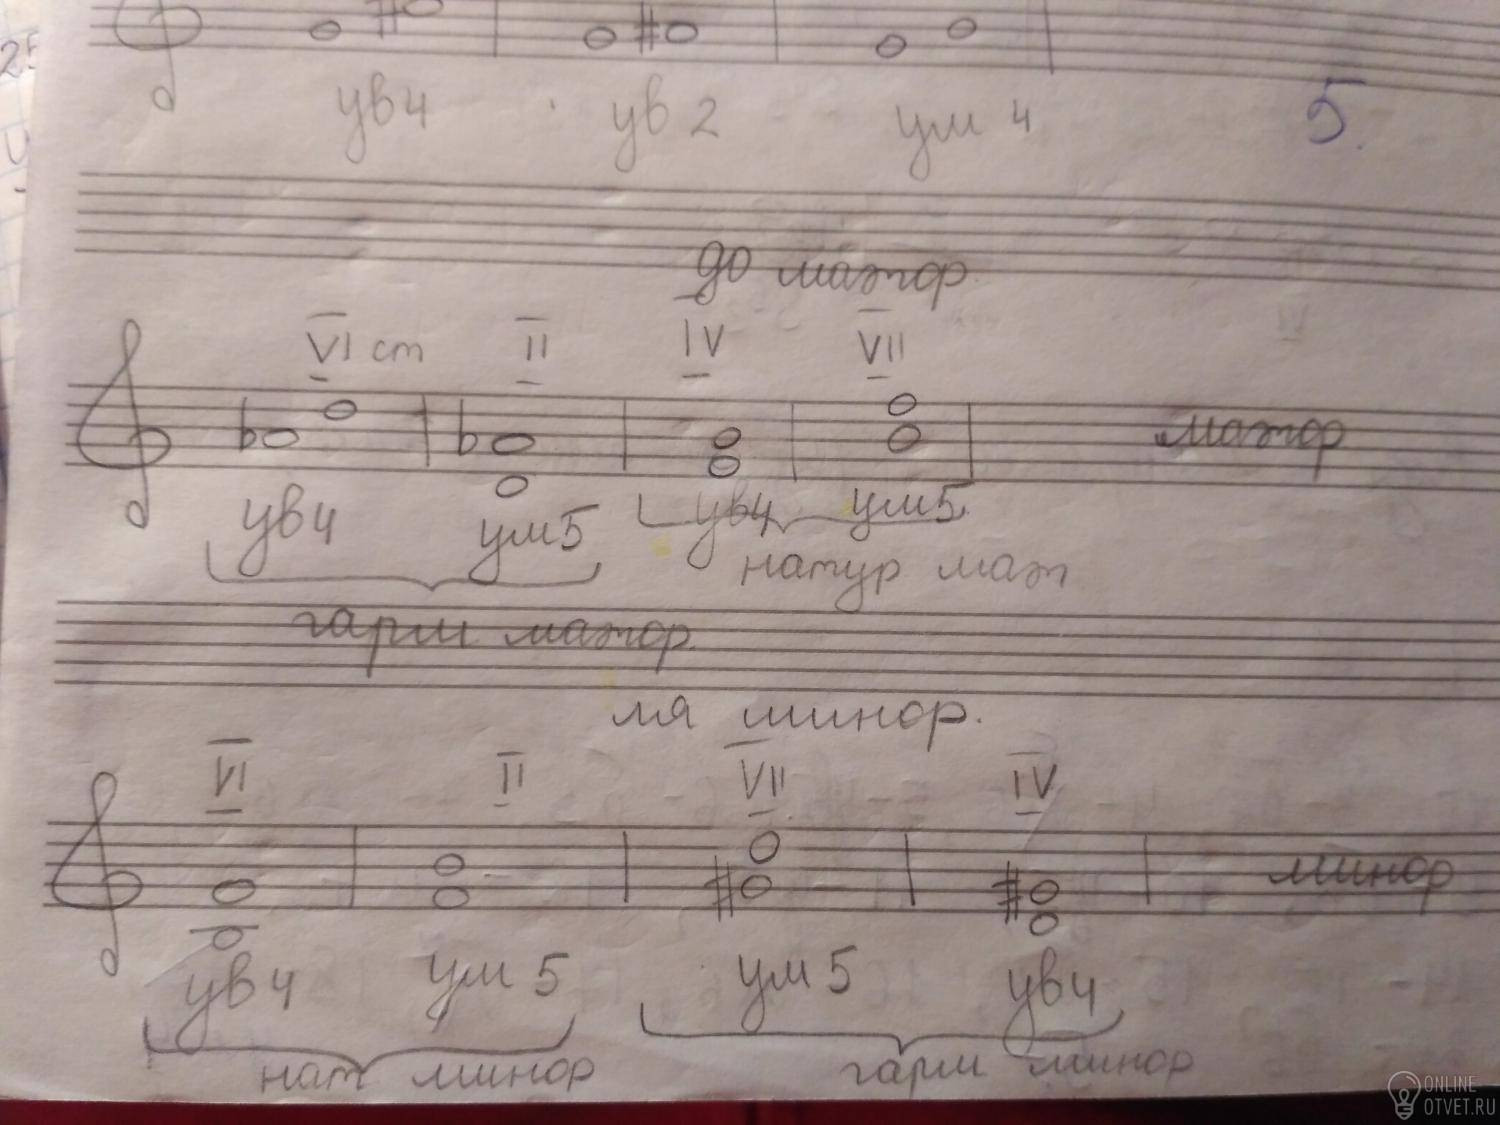 ув4 ув 2 ум 4 5.
до мажор
VI ст II IV VII
мажор
ув4 ум5 ув4 ум5
натур маж
гарм мажор
ля минор.
VI II VII IV
минор
ув4 ум 5 ум 5 ув4
нат минор гарм минор
ONLINE
OTVET.RU